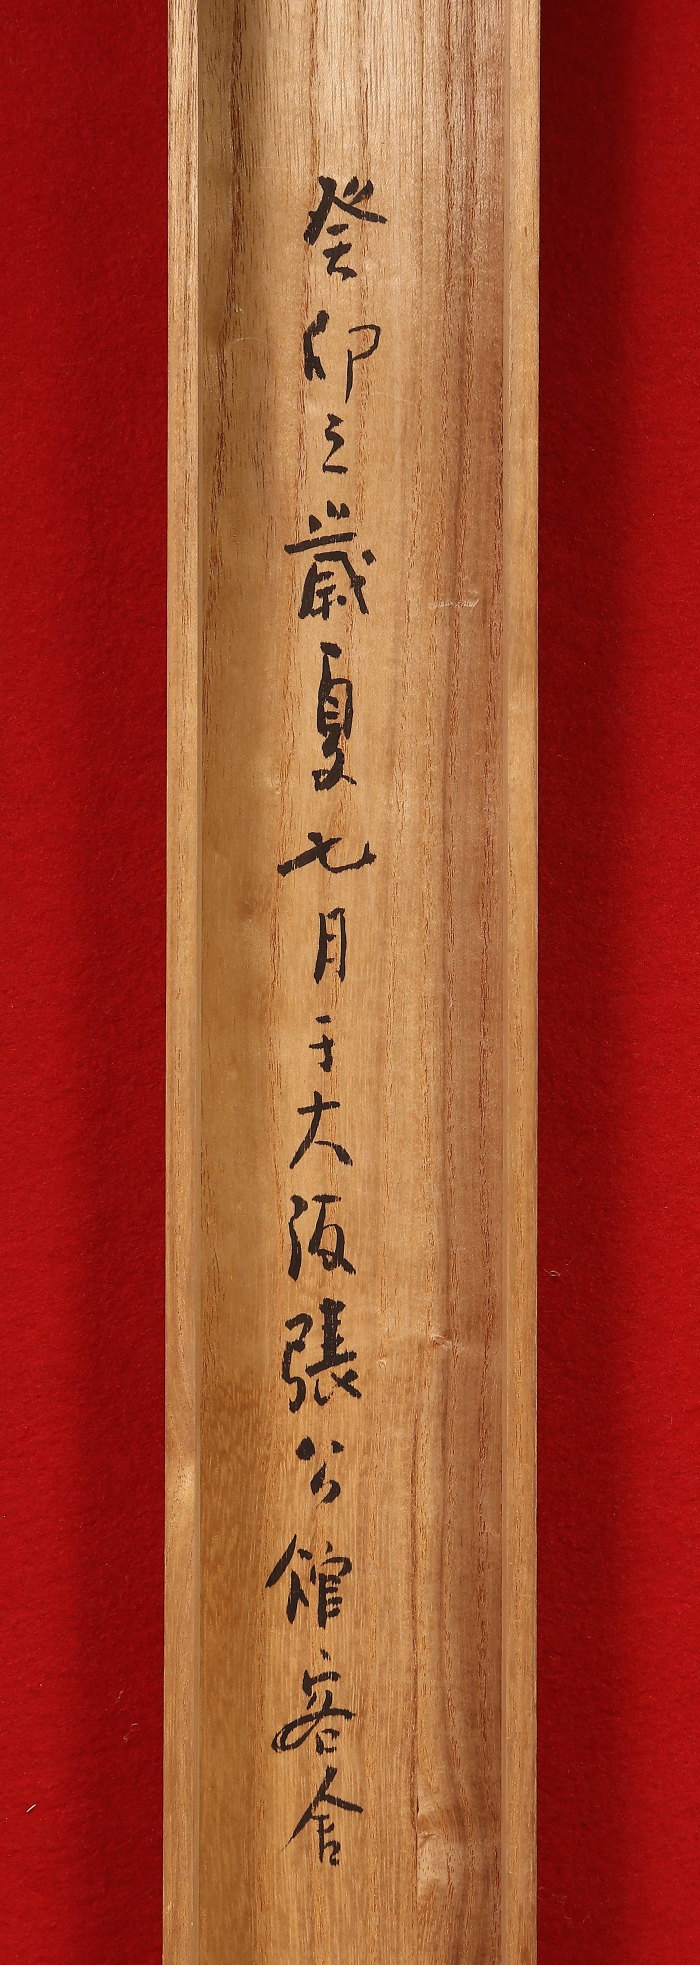 癸卯之歲夏七月于大阪張公館客舍